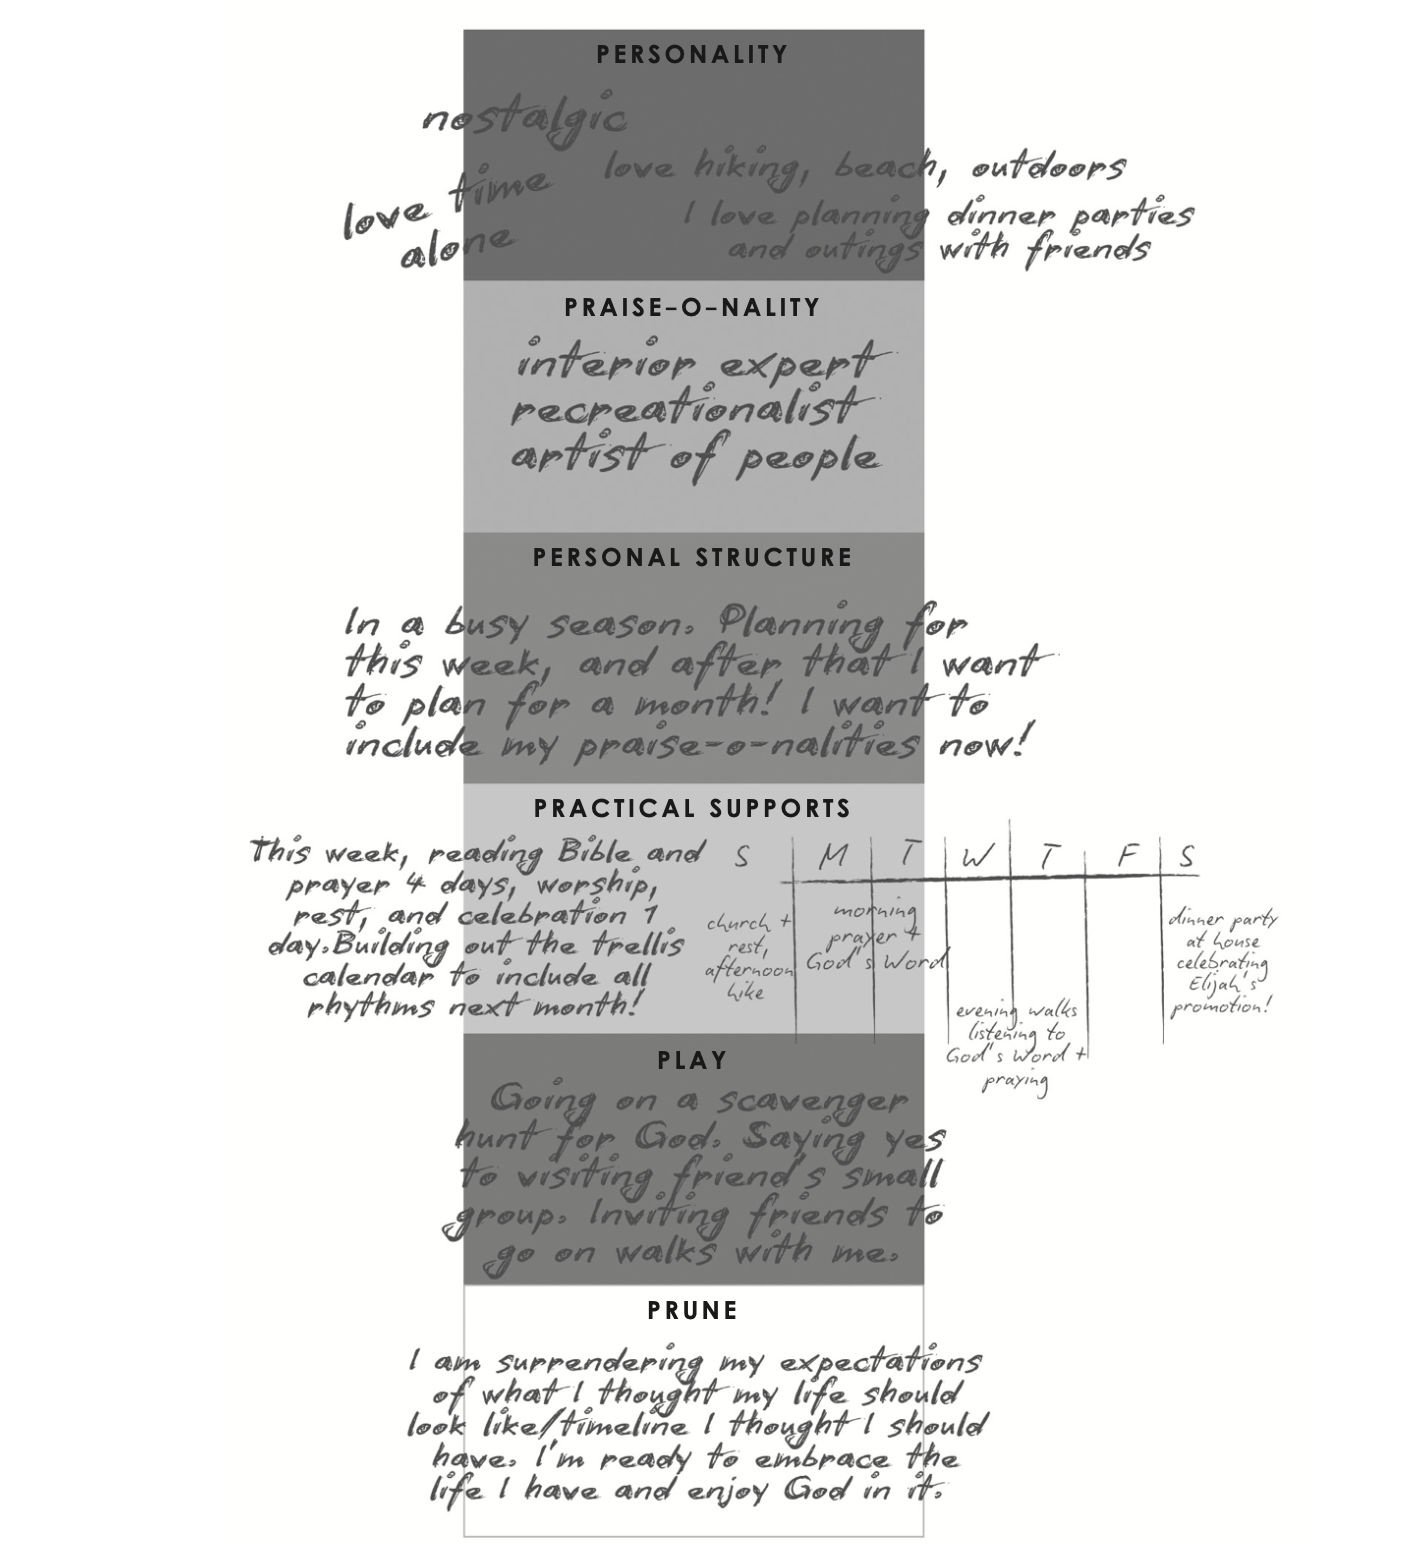 PERSONALITY
nostalgic
love time
alone
love hiking, beach, outdoors
I love planning dinner parties
and outings with friends
PRAISE-O-NALITY
interior expert
recreationalist
artist of people
PERSONAL STRUCTURE
In a busy season. Planning for
this week, and after that I want
to plan for a month! I want to
include my praise-o-nalities now!
PRACTICAL SUPPORTS
This week, reading Bible and
prayer 4 days, worship,
rest, and celebration 1
day.Building out the trellis
calendar to include all
rhythms next month!
S M T W T F S
church +
rest,
afternoon
hike
morning
prayer +
God's Word
evening walks
listening to
God's Word +
praying
dinner party
at house
celebrating
Elijah's
promotion!
PLAY
Going on a scavenger
hunt for God. Saying yes
to visiting friend's small
group. Inviting friends to
go on walks with me.
PRUNE
I am surrendering my expectations
of what I thought my life should
look like/timeline I thought I should
have. I'm ready to embrace the
life I have and enjoy God in it.